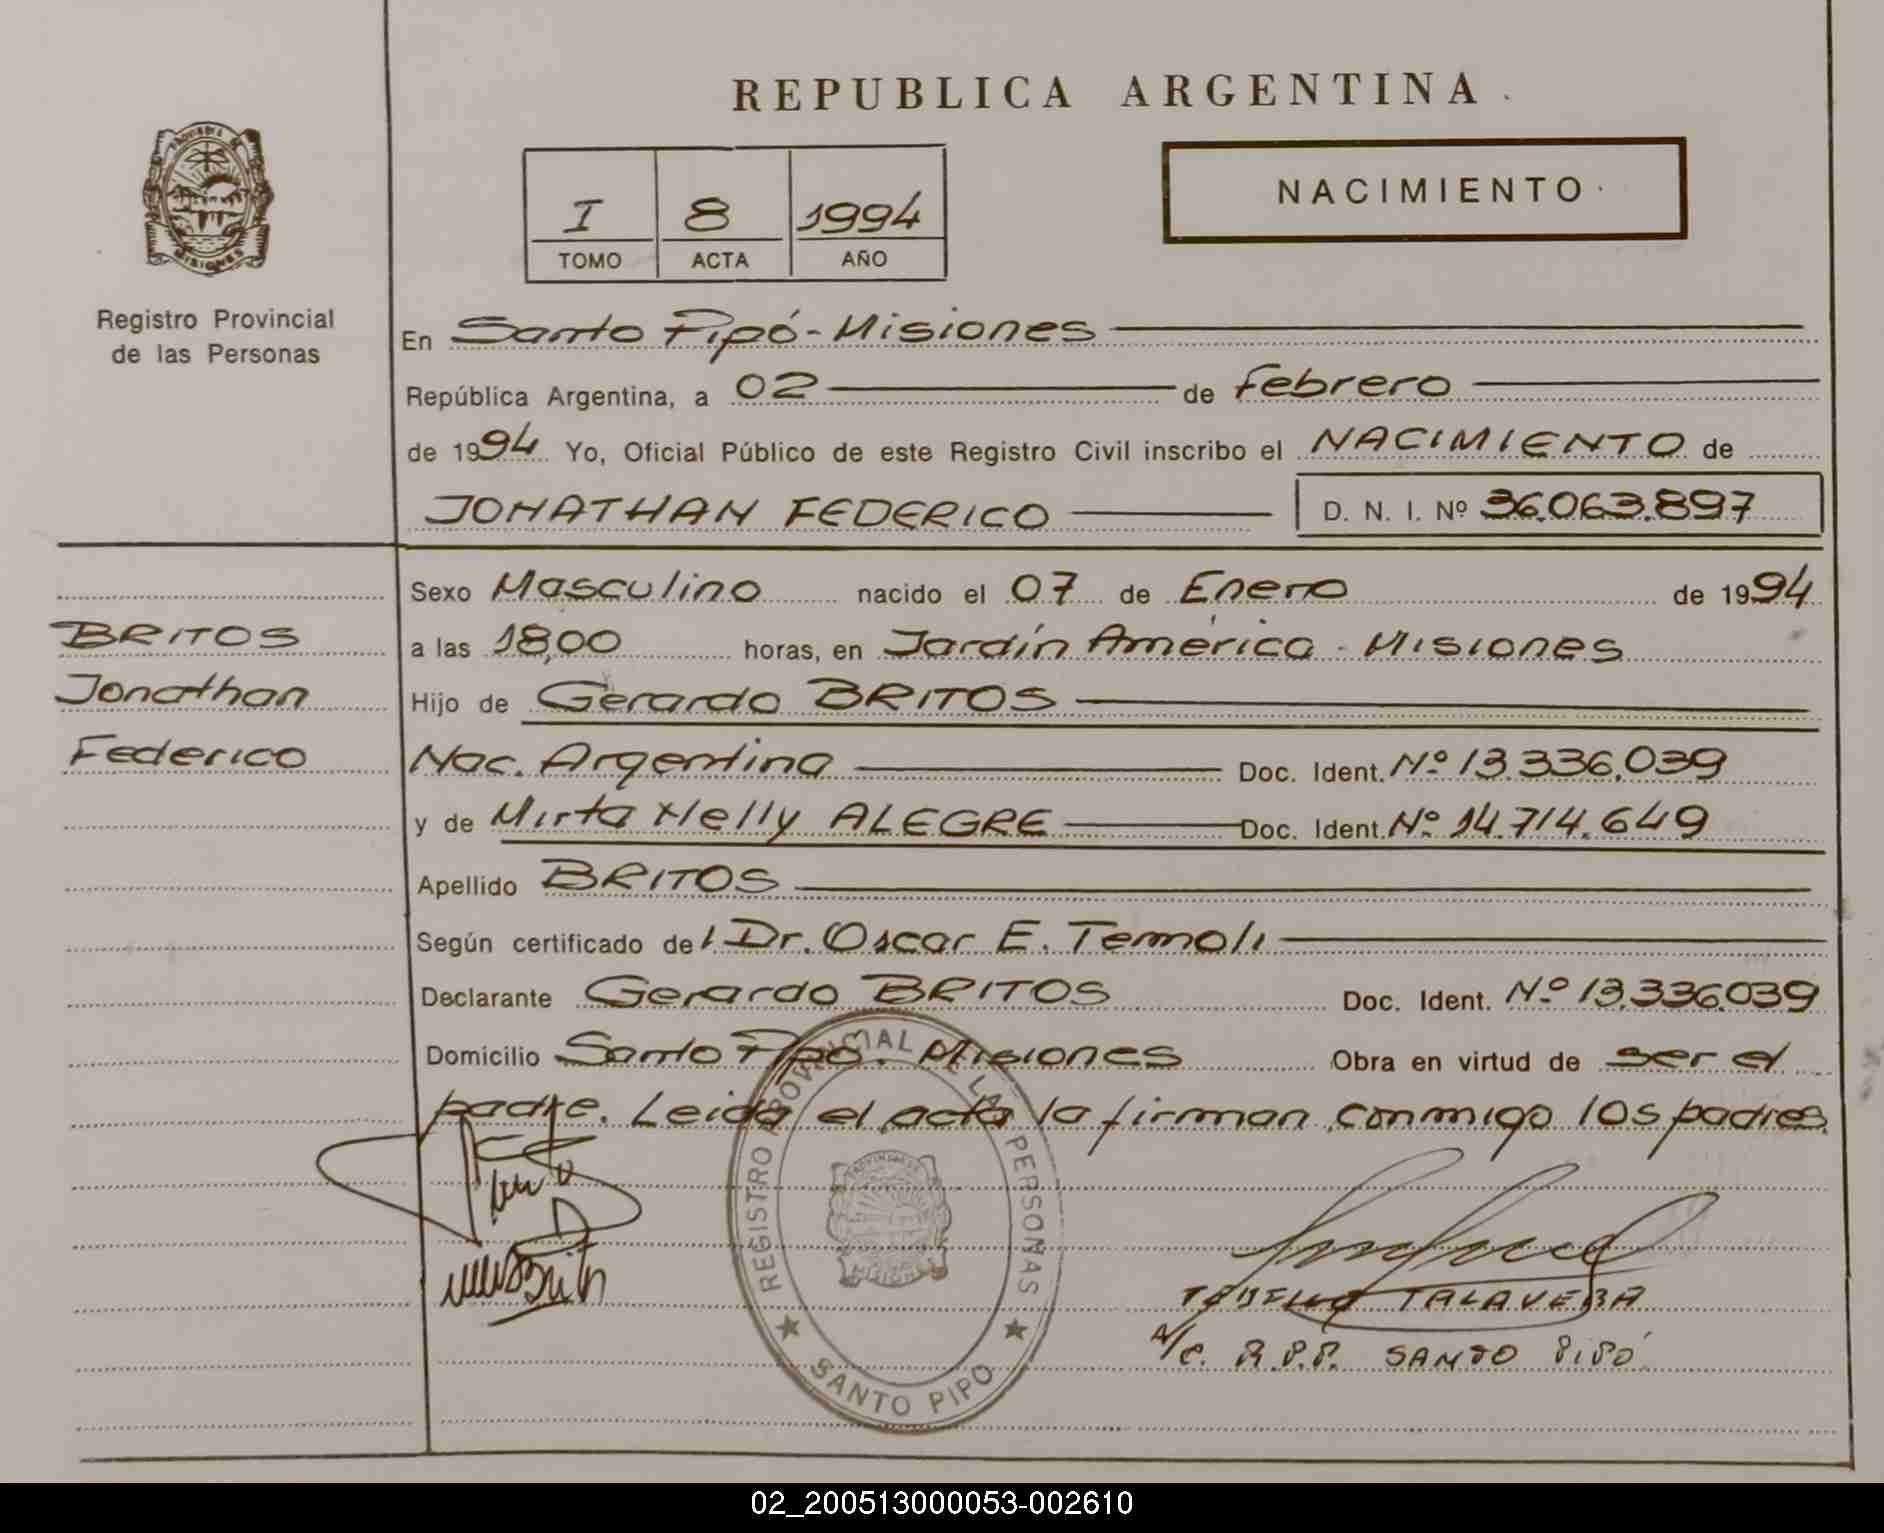 REPUBLICA ARGENTINA
NACIMIENTO
I 8 1994
TOMO ACTA AÑO
PROVINCIA DE
MISIONES
Registro Provincial
de las Personas
En Santo Pipó - Misiones
República Argentina, a 02 de Febrero
de 1994 Yo, Oficial Público de este Registro Civil inscribo el NACIMIENTO de
JONATHAN FEDERICO D. N. I. Nº 36.063.897
Sexo Masculino nacido el 07 de Enero de 1994
BRITOS
a las 18,00 horas, en Jardín América - Misiones
Jonathan
Hijo de Gerardo BRITOS
Federico
Nac. Argentina Doc. Ident. Nº 13.336.039
y de Mirta Nelly ALEGRE Doc. Ident. Nº 14.714.649
Apellido BRITOS
Según certificado del Dr. Oscar E. Temoli
Declarante Gerardo BRITOS Doc. Ident. Nº 13.336.039
Domicilio Santo Pipó. Misiones Obra en virtud de ser el
padre. Leida el acta la firman conmigo los padres.
REGISTRO PROVINCIAL DE LAS PERSONAS
SANTO PIPO
TALAVERA
A/C. R.P.P. SANTO PIPÓ
02_200513000053-002610